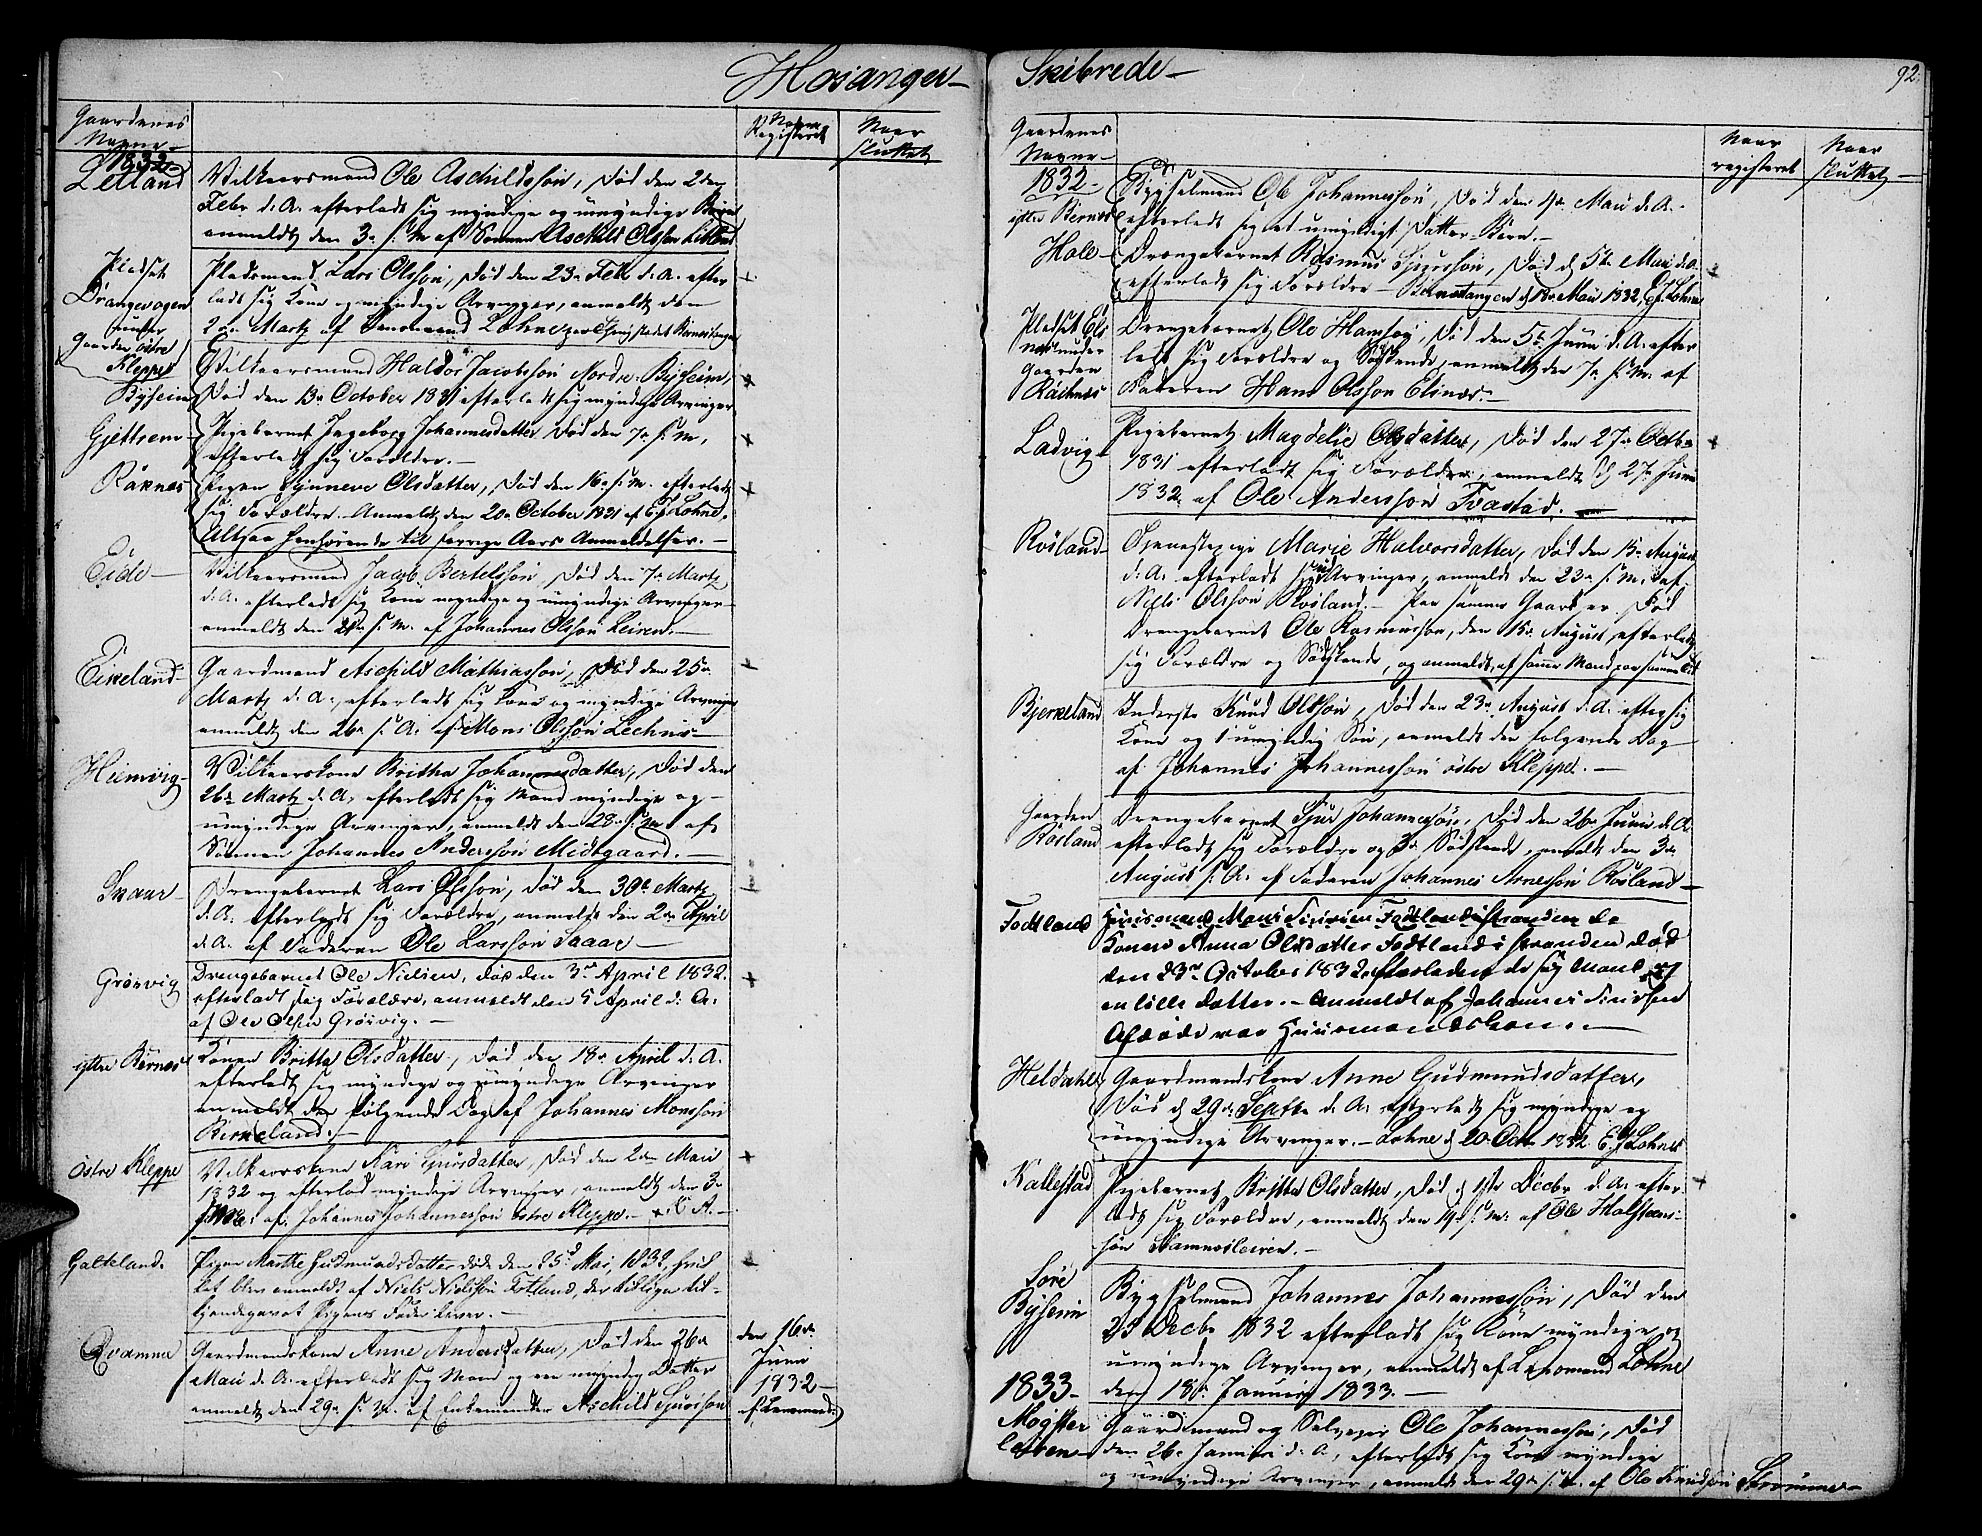 Hosanger
Gaardenes Navne
Naar Registeret
Naar sluttet
1832
Letland
Vilkaarsmand Ole Aschildssön, død den 2den
Febr d. A. efterladt sig myndige og umyndige
anmeldt den 3de s. M. af Sönnen Aschild Olssön Letland
Pladset Drangevogen under Gaarden östre Kleppe
Pladsmand Lars Olssön, død den 23de Feb. d. A. efter
ladt sig Kone og myndige Arvinger, anmeldt den
2den Martz af Lensmand Lohne
Vilkaarsmand Haldor Jacobssön Nordre Bysheim,
Bysheim
død den 13de October 1831 efterladt sig myndige Arvinger
Gjettrem
Pigebarnet Ingeborg Johannesdatter død den 7de s. M,
efterladt sig Forældre.
Raknes
Pigen Synneve Olsdatter, død den 16de s. M. efterladt
sig Forældre. Anmeldt den 20de October 1831 af E. J. Lohne,
Altsaa henhörende til forrige Aars Anmeldelser.
Eide
Vilkaarsmand Jacob Bertelssön, død den 7de Martz
d. A. efterladt sig Kone myndige og umyndige Arvinger
anmeldt den 21de s. M. af Johannes Olssön Leiren.
Eikeland
Gaardmand Aschild Mathiassön, død den 25de
Martz d. A., efterladt sig Kone og myndige Arvinger
anmeldt den 26de s. A. af Mons Olssön
Hiemvig
Vilkaarskone Britha Johannesdatter, død den
26de Martz d. A, efterladt sig Mand myndige og
umyndige Arvinger, anmeldt den 28de s. M af
Sönnen Johannes Anderssön Midtgaard.
Skaar
Drengebarnet Lars Olssön, død den 30te Martz
d. A. efterladt sig Forældre, anmeldt den 2den April
d. A. af Faderen Ole Larssön Skaar
Grösvig
Drengebarnet Ole Nielsen, død den 3de April 1832.
efterladt sig Forældre, anmeldt den 5 April d. A.
af Ole Olsen Grösvig.
ytre Bernes
Konen Britta Olsdatter, død den 18de April d. A.
efterladt sig myndige og umyndige Arvinger
anmeldt den følgende Dag af Johannes Monssön
Birkeland.
östre Kleppe
Vilkaarskone Kari Sjursdatter, død den 2den Maii
1832 og efterlod myndige Arvinger, anmeldt den 3de
af Johannes Johannessön östre Kleppe. d. A.
Galteland.
Pigen Marthe Gudmundsdatter døde den 25de Mai, 1832, hvil-
ket blev anmeldt af Niels Nielssön Fotland, der tillige til-
kjendegavet Pigens Fader lever.
Qvamne
Gaardmandskone Anne Andersdatter, død den 26de
Maii d. A. efterladt sig Mand og een myndig Datter
anmeldt den 29de s. M. af Enkemanden Aschild Sjurssön
den 16de Junii 1832 af Lensmand
Skibrede
92.
Gaardenes Navne
Naar registeret
Naar sluttet
1832
ytre Bernes
Bygselmand Ole Johannessön, død den 4de Maii d. A.
efterladt sig et umyndigt Datter-Barn.
Hole
Drengebarnet Rasmus Sjurssön, død d 5te Maii d. A.
efterladt sig Forældre Bernestangen d 13de Maii 1832, E. J. Lohne
Pladset Elsnes under Gaarden Raknes
Drengebarnet Ole Hanssön, død den 5te Junii d. A. efter
ladt sig Forældre og Sødskende, anmeldt den 7de s. M. af
Faderen Hans Olssön Elsnes.
Ladvig
Pigebarnet Magdelie Olsdatter, død den 27de Octbr
1831 efterladt sig Forældre, anmeldt d 27de Junii
1832 af Ole Anderssön Tvastad.
Rösland
Tjenestepige Marie Halvorsdatter, død den 15de August
d. A. efterladt sig Arvinger, anmeldt den 23de s. M. af
Niels Olssön Rösland. Paa samme Gaard er død
Drengebarnet Ole Rasmussön, den 15de August, efterladt
sig Forældre og Södskende, og anmeldt af samme Mand paa samme Tid
Bjerkeland
Inderste Knud Olssön, død den 23de August d. A. efter sig
Kone og 1 umyndig Søn, anmeldt den følgende Dag
af Johannes Johannessön östre Kleppe.
Gaarden Rösland
Drengebarnet Sjur Johannessön, død den 26de Junii d. A.
efterladt sig Forældre og 3de Sødskende, anmeldt den 3de
August s. A. af Faderen Johannes Arnessön Rösland
Fodtland
Huusmand Mons Fodtland i Stranden de
Konen Anna Olsdatter Fodtland i stranden død
den 23de October 1832 efterladen de sig Mand og
en lille datter. Anmeldt af Johannes
Afdøde var Huusmandskone.
Heldahl
Gaardmandskone Anne Gudmundsdatter,
død d 29de Septbr d. A. efterladt sig myndige og
umyndige Arvinger. Lohne d 20 Octbr 1832 E. J. Lohne
Kallestad
Pigebarnet Britta Olsdatter, død d 1ste Decbr d. A. efter-
ladt sig Forældre, anmeldt den 19de s. M. af Ole Halsteens-
sön Stamnesleiren.
Søre Bysheim
Bygselmand Johannes Johannessön, død den
23 Decbr 1832 efterladt sig Kone myndige og
umyndige Arvinger, anmeldt af Lensmand Lohne
den 18de Januarii 1833.
1833
Mogster leiren
Gaardmand og Selveier Ole Johannessön, død
den 26de Januarii d. A, efterladt sig Kone myndige
og umyndige Arvinger, anmeldt den 29de s. M. af Ole Knudssön Strömme